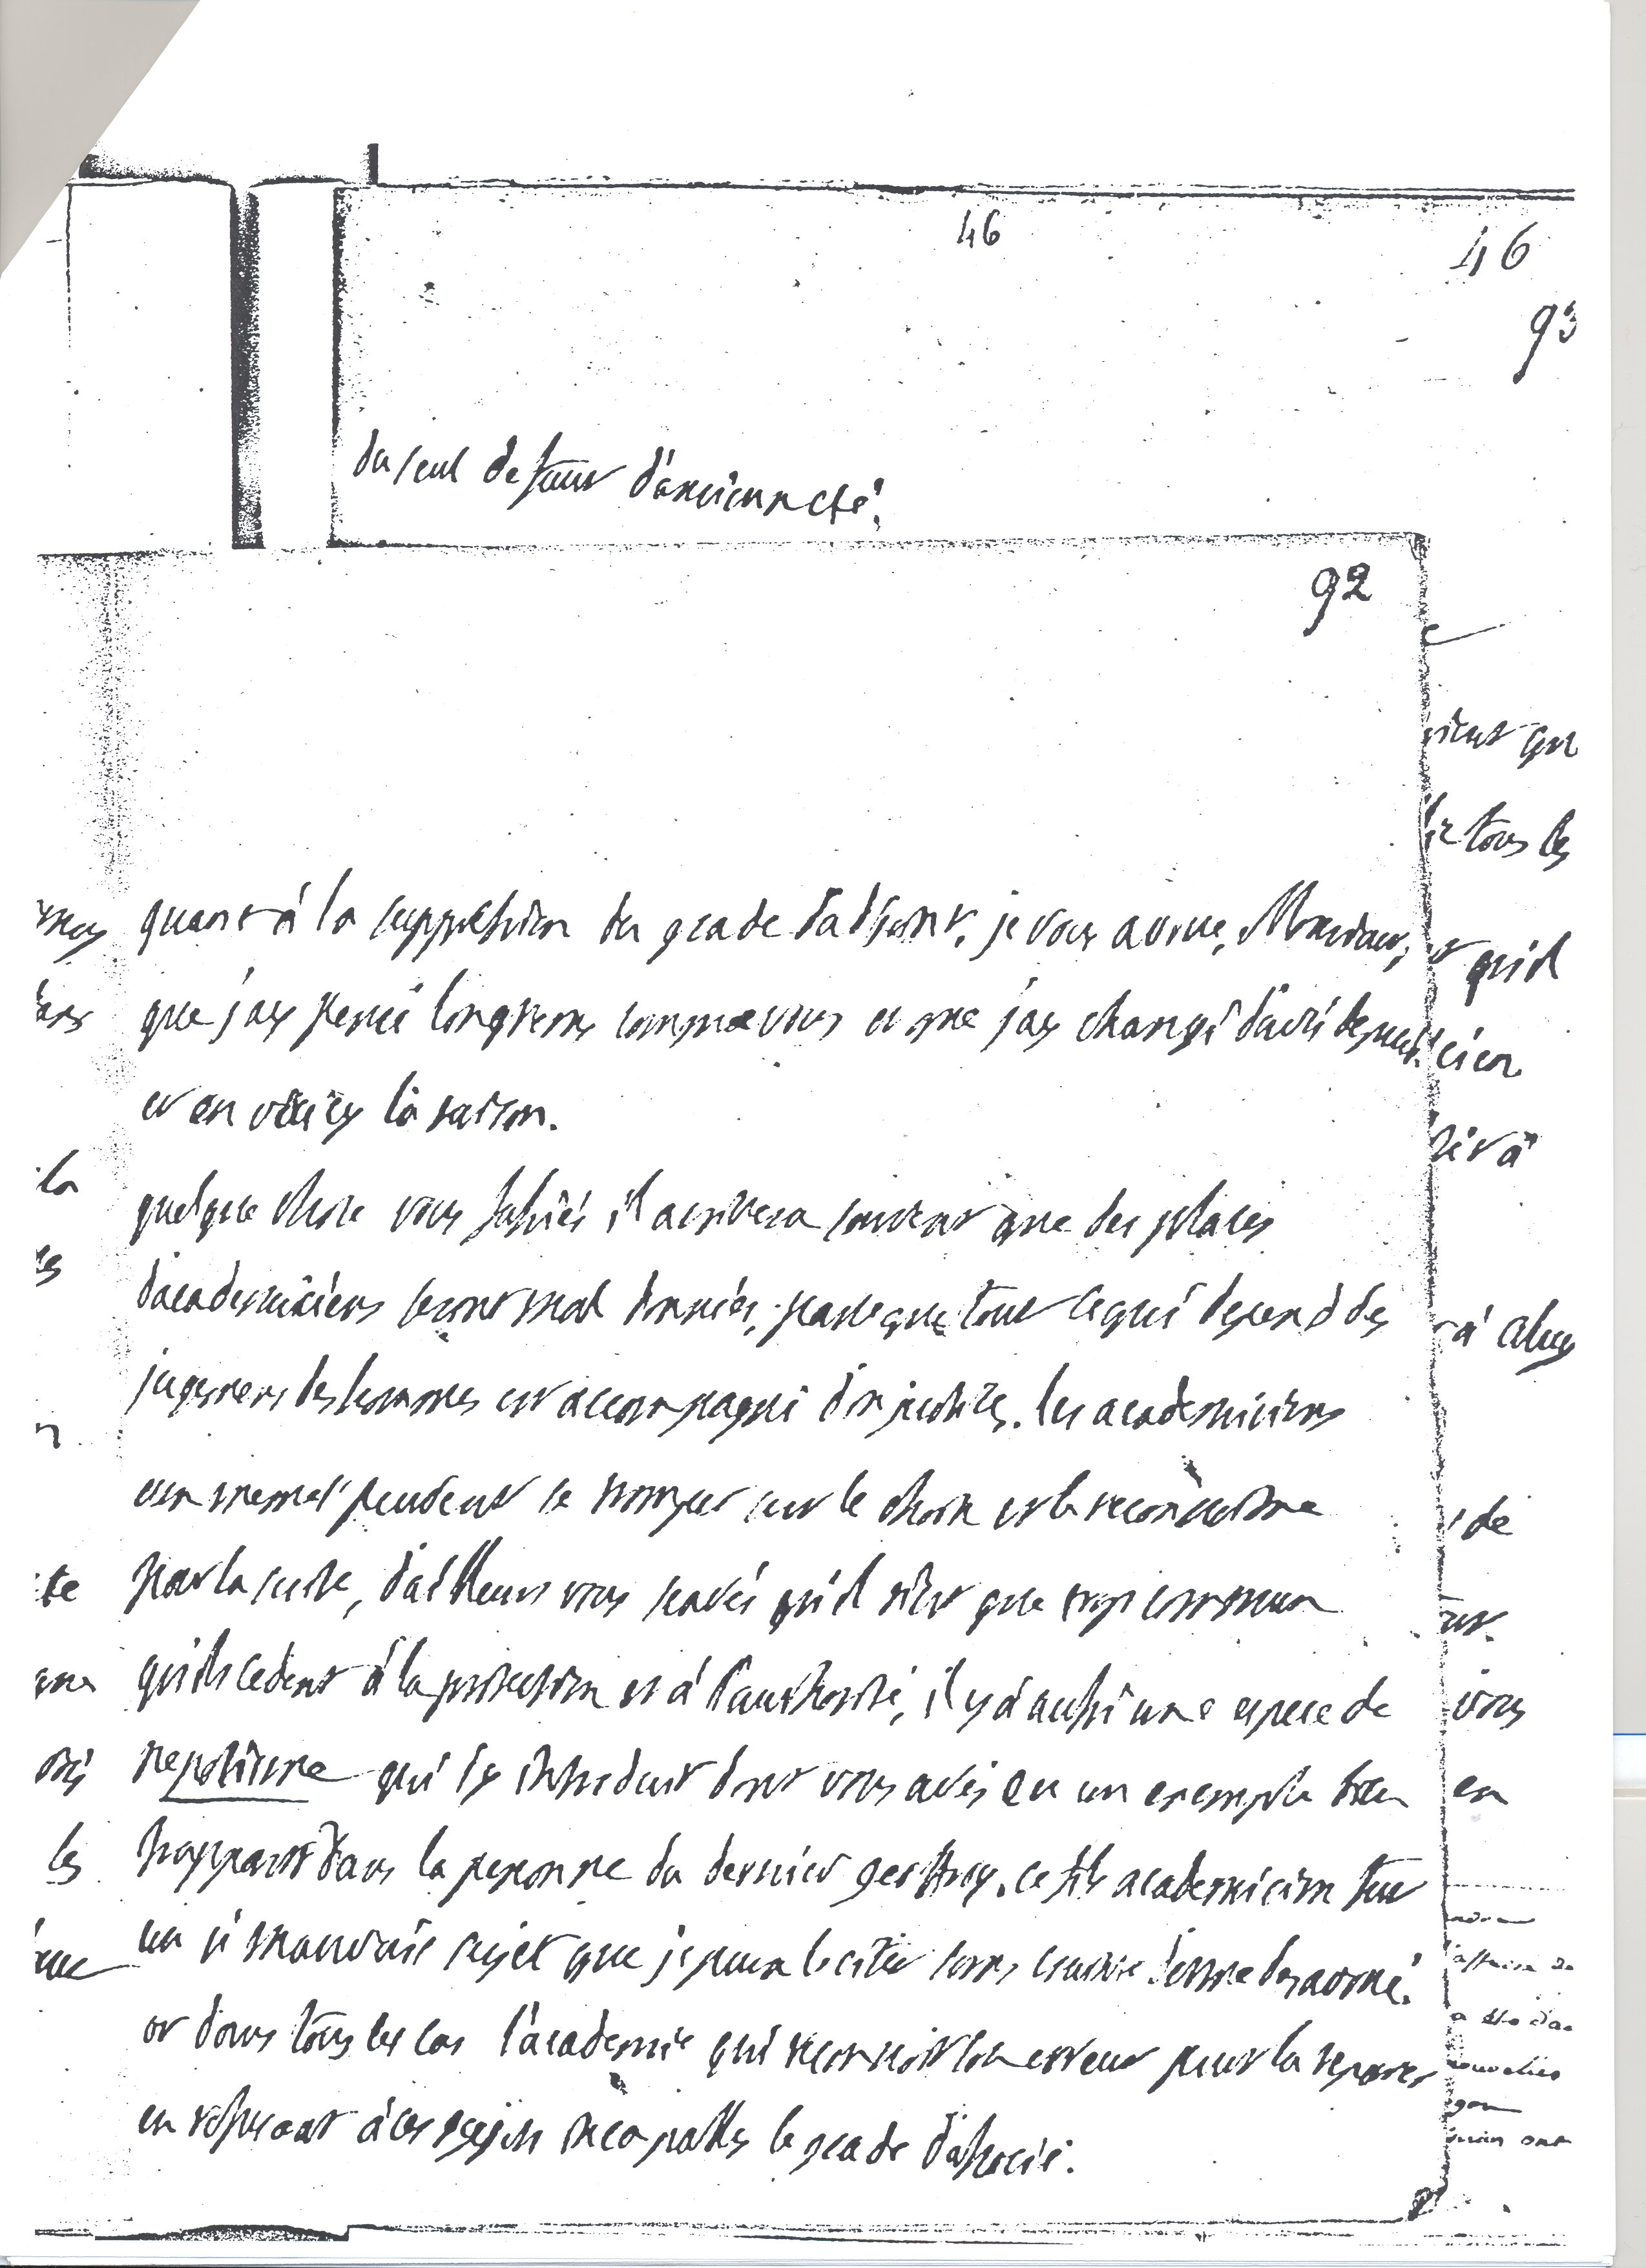 46
46
93
du seul defaut d'ancienneté.
92
quant à la suppression du grade d'adjoint, je vous avoue, Monsieur,
que j'ay pensé longtems comme vous et que j'ay changé d'avis depuis
et en voicy la raison.
quelque chose vous fassiés il arrivera souvent que des places
d'academiciens seront mal données, parceque tout ce qui depend des
jugemens des hommes est accompagné d'injustices. les academiciens
eux memes peuvent se tromper sur le choix et le reconnoitre
par la suite, d'ailleurs vous savés qu'il n'est que trop commun
qu'ils cedent à la protection et à l'authorité, il y a aussi une espece de
nepotisme qui s'y introduit dont vous avés eu un exemple bien
frappant dans la personne du dernier geoffroy. ce fils academicien fut
un si mauvais sujet que je puis le citer sans crainte d'etre desavoué.
or dans tous les cas l'academie qui reconnoit son erreur peut la reparer
en refusant à ces sujets incapables le grade d'associé.
ient que
tous les
qu'il
à
de
vous
en
les
la